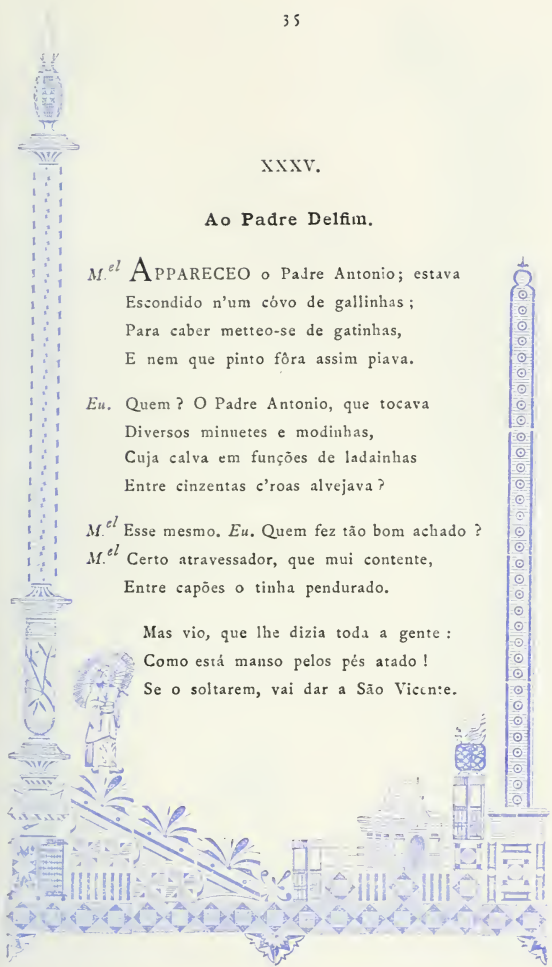 35
XXXV.
Ao Padre Delfim.
M.el APPARECEO o Padre Antonio; estava
Escondido n'um cóvo de gallinhas ;
Para caber metteo-se de gatinhas,
E nem que pinto fôra assim piava.
Eu. Quem ? O Padre Antonio, que tocava
Diversos minuetes e modinhas,
Cuja calva em funções de ladainhas
Entre cinzentas c'roas alvejava ?
M.el Esse mesmo. Eu. Quem fez tão bom achado ?
M.el Certo atravessador, que mui contente,
Entre capões o tinha pendurado.
Mas vio, que lhe dizia toda a gente :
Como está manso pelos pés atado !
Se o soltarem, vai dar a São Vicente.